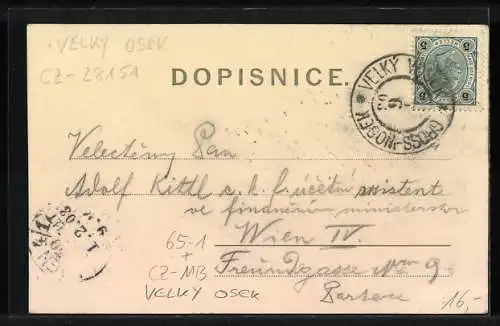 VELKY OSEK
CZ-28151
DOPISNICE.
VELKÝ
GROSS-WOSEK
5 5
5 5
Velectěný Pan
Adolf Kittl c. k. f. účetní assistent
ve finančním ministerstvu
Wien IV.
65-1
+
CZ-MB
Freundgasse No 9
VELKY OSEK
Parterre
16,-